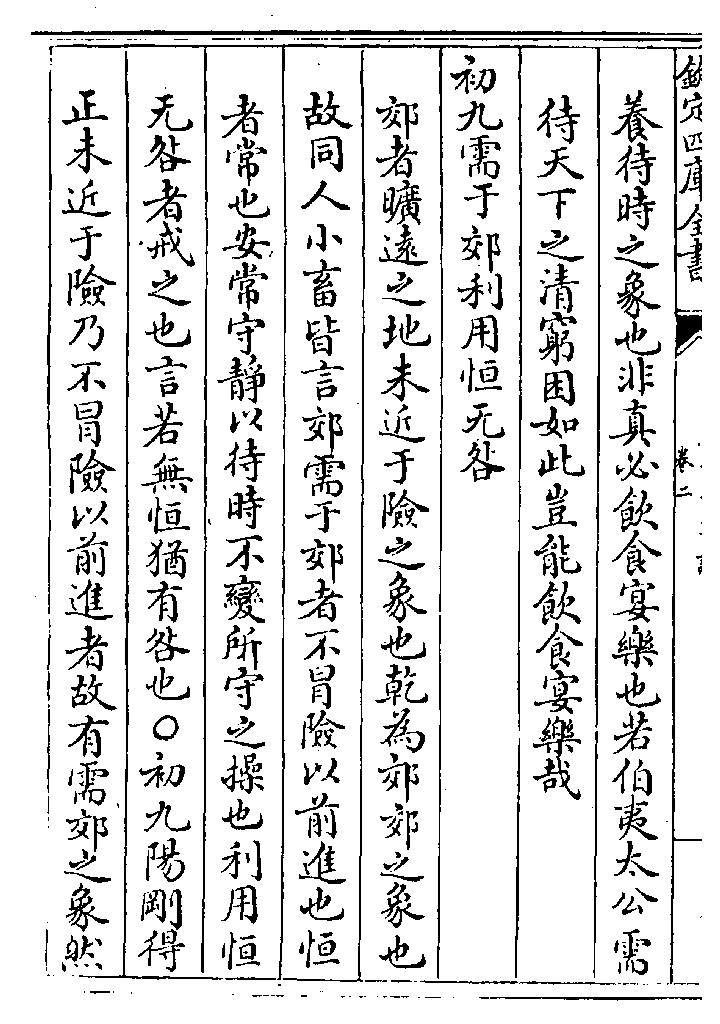 欽定四庫全書
卷二
養待時之象也非真必飲食宴樂也若伯夷太公需
待天下之清窮困如此豈能飲食宴樂哉
初九需于郊利用恒无咎
郊者曠遠之地未近于險之象也乾為郊郊之象也
故同人小畜皆言郊需于郊者不冒險以前進也恒
者常也安常守靜以待時不變所守之操也利用恒
无咎者戒之也言若無恒猶有咎也○初九陽剛得
正未近于險乃不冒險以前進者故有需郊之象然